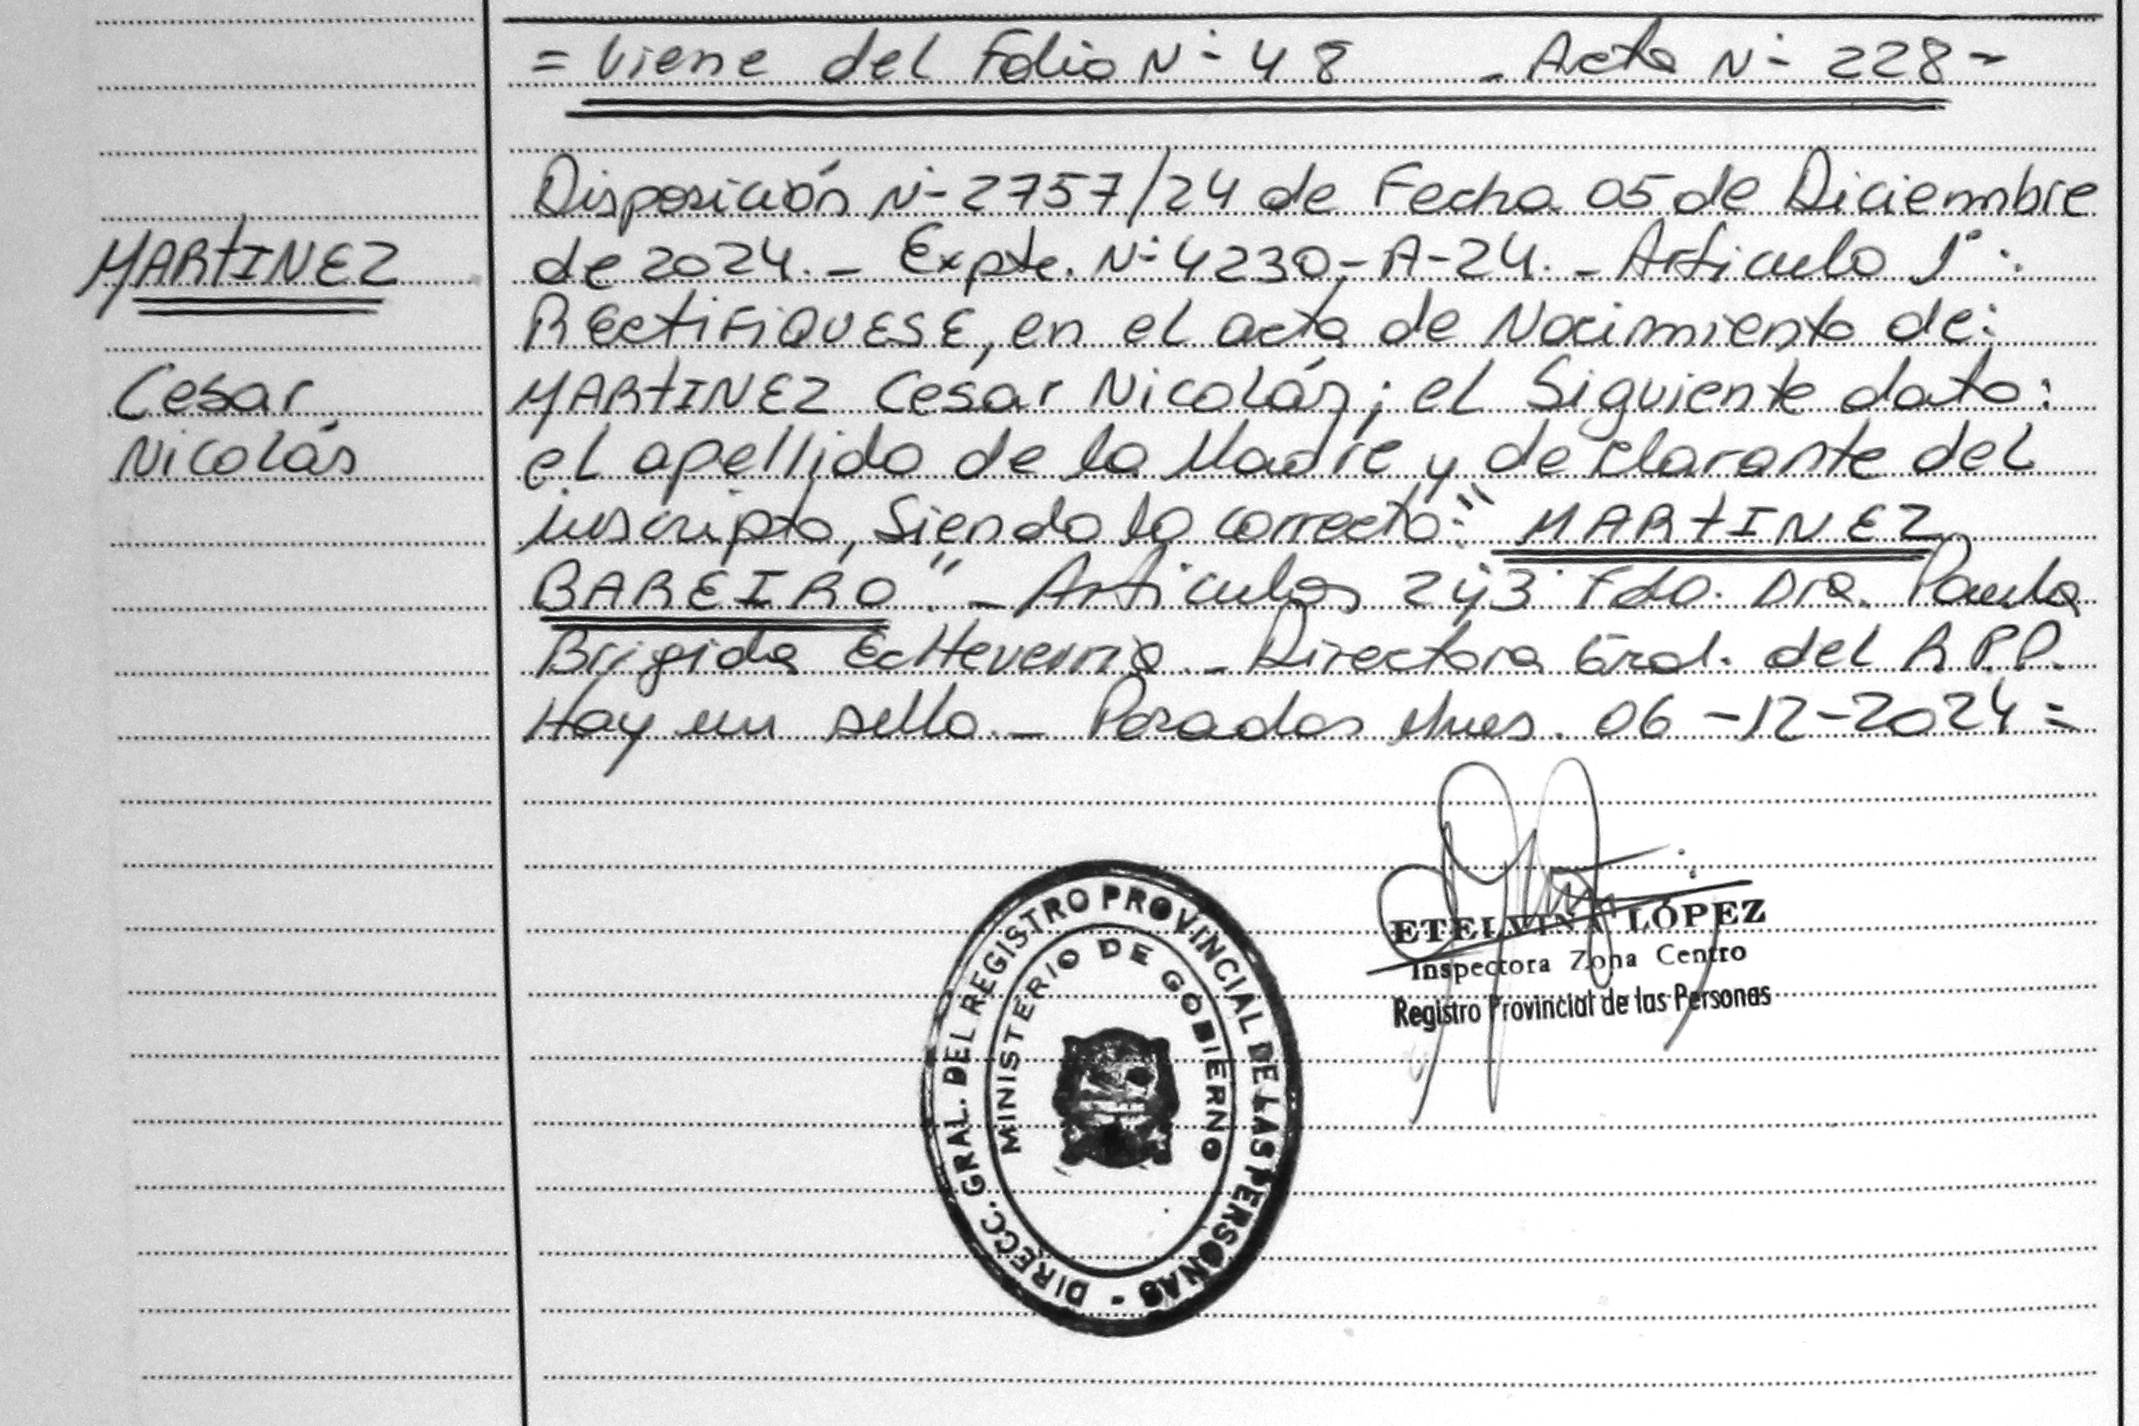 = Viene del Folio N- 48 - Acta N- 228 -
Disposición N- 2757/24 de Fecha 05 de Diciembre
de 2024. - Expte. N- 4230-A-24. - Articulo 1°:
MARTINEZ
RECTIFIQUESE, en el acta de Nacimiento de:
MARTINEZ Cesar Nicolás; el Siguiente dato:
Cesar
Nicolás
el apellido de la Madre y declarante del
inscripto, Siendo lo correcto: "MARTINEZ
BAREIRO" - Articulos 2y3 Fdo. Dra. Paula
Brigida Echeverria - Directora Gral. del R.P.P.
Hay un sello. - Posadas Mnes. 06-12-2024 =
ETELVINA LÓPEZ
Inspectora Zona Centro
Registro Provincial de las Personas
DIRECC. GRAL. DEL REGISTRO PROVINCIAL DE LAS PERSONAS -
MINISTERIO DE GOBIERNO